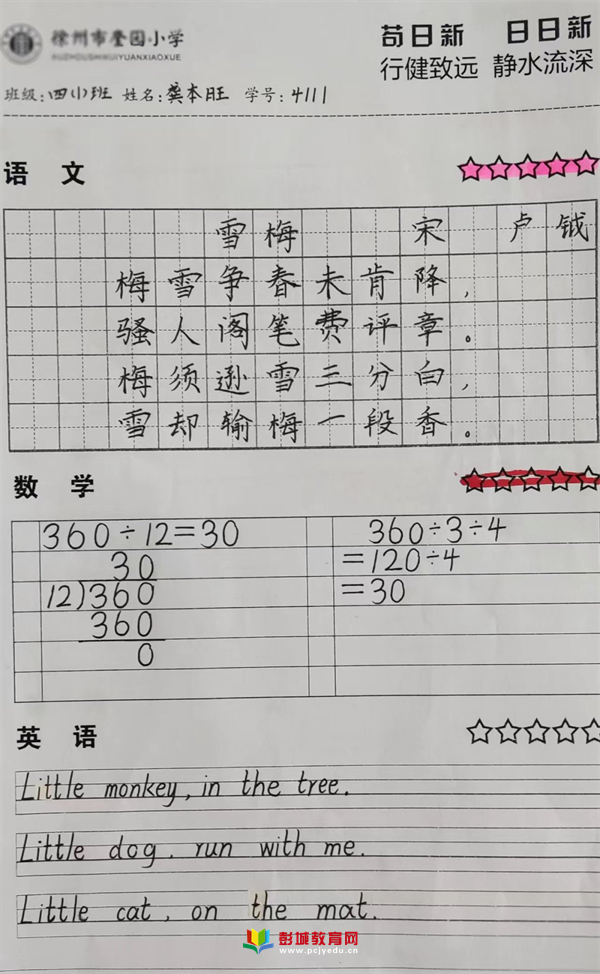 徐州市奎园小学
XUZHOUSHIKUIYUANXIAOXUE
苟日新 日日新
行健致远 静水流深
班级:四小班 姓名:龚本旺 学号:4111
语 文
雪梅 宋 卢钺
梅雪争春未肯降,
骚人阁笔费评章。
梅须逊雪三分白,
雪却输梅一段香。
数 学
360÷12=30
30
12)360
360
0
360÷3÷4
=120÷4
=30
英 语
Little monkey, in the tree.
Little dog, run with me.
Little cat, on the mat.
彭城教育网
www.pcjyedu.cn